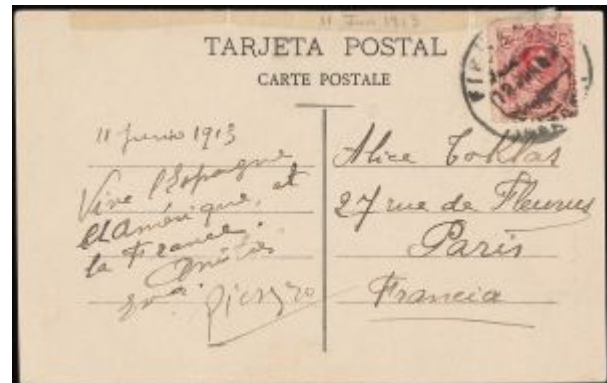 11 Jun 1913
TARJETA POSTAL
CARTE POSTALE
11 Junio 1913
Vive l'Espagne
et Amérique, et
la France.
Amitiés
Eva.
Picasso
Alice Toklas
27 rue de Fleurus
Paris
Francia